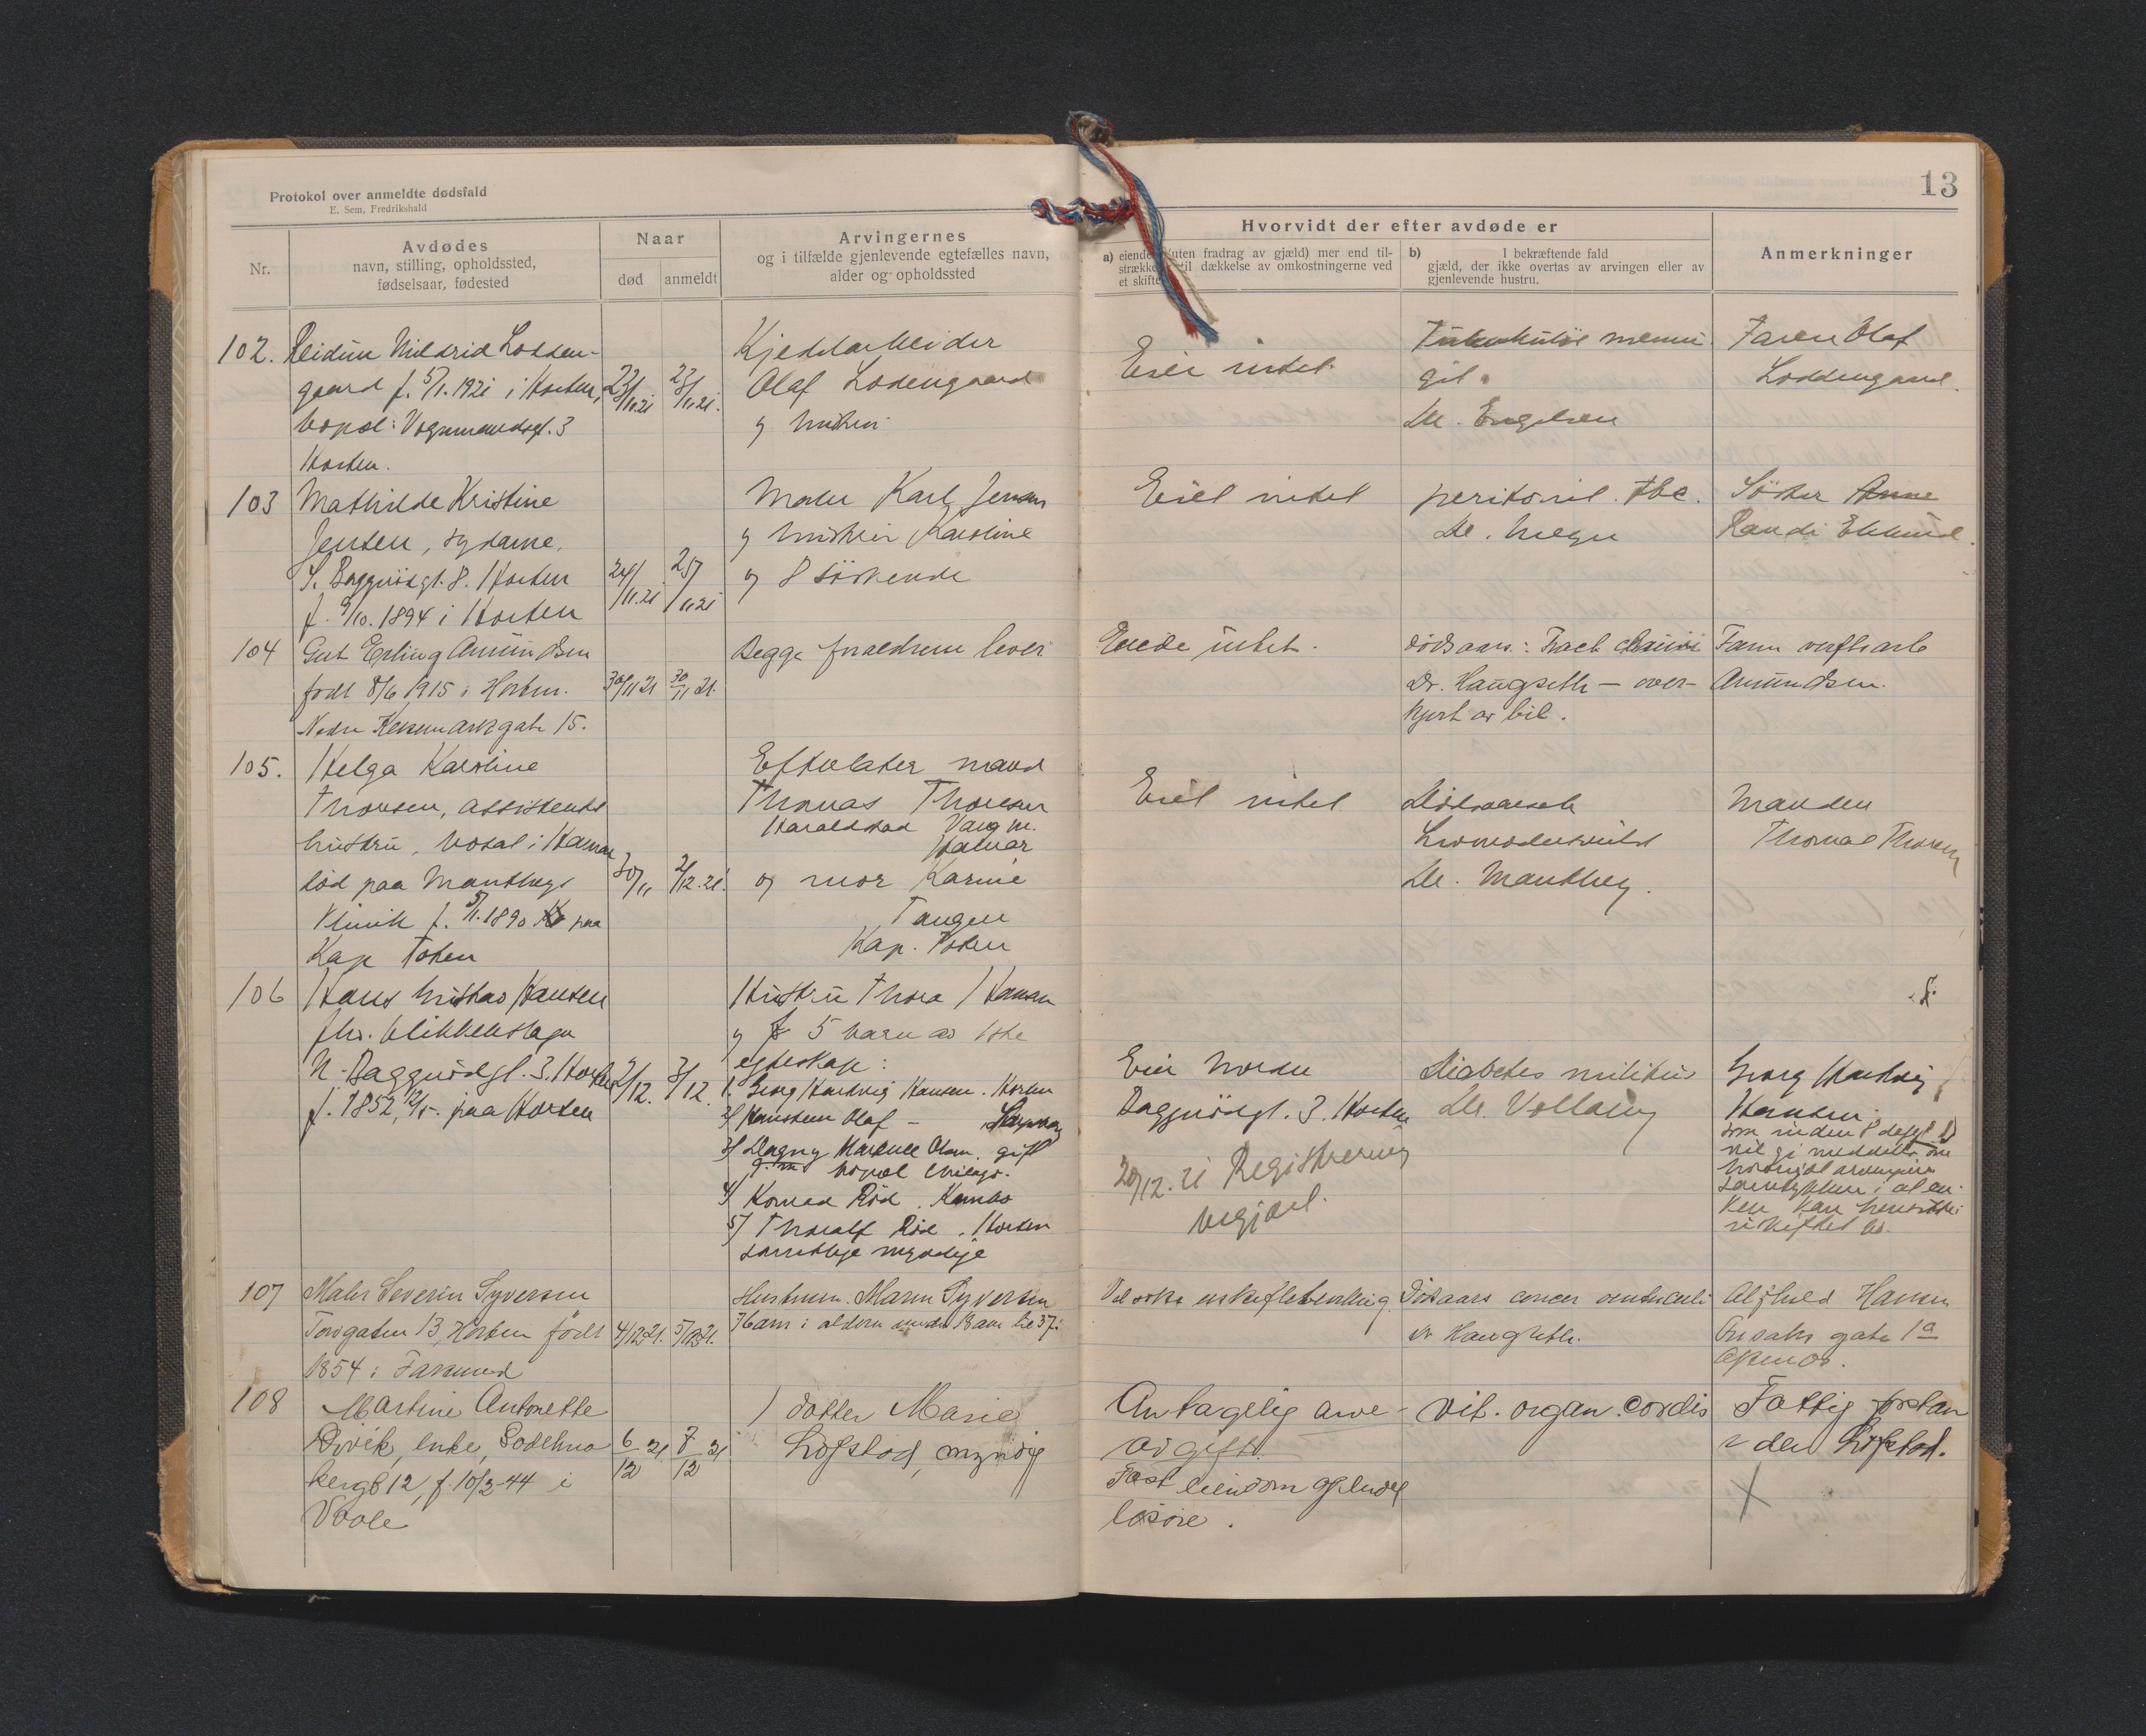 Protokol over anmeldte dødsfald
E. Sem, Fredrikshald
13
Nr.
Avdødes
navn, stilling, opholdssted,
fødselsaar, fødested
Naar
død
anmeldt
Arvingernes
og i tilfælde gjenlevende egtefælles navn,
alder og opholdssted
Hvorvidt der efter avdøde er
a) eiende (uten fradrag av gjæld) mer end til-
strække til dækkelse av omkostningerne ved
et skifte
b) I bekræftende fald
gjæld, der ikke overtas av arvingen eller av
gjenlevende hustru.
Anmerkninger
102. Reidun Mildrid Lodden-
gaard f. 5/1. 1921 i Horten,
bopæl: Vognmandsgt. 3
Horten.
22/11.21
23/11.21.
Kjedelarbeider
Olaf Lodengaard
og hustru
Eier intet
Tuberkuløs menin
git.
Dr. Engelsen
Faren Olaf
Loddengaard.
103 Mathilde Kristine
Jensen, sydame,
S. Baggerødgt. 8. Horten
f. 9/10. 1894 i Horten
24/11.21
25/11.21
Maler Karl Jensen
og hustru Karoline
og 8 søskende
Eiet intet
peritonit. tbc.
Dr.
Søster Anne
Randi Eklund.
104 Gut Erling Amundsen
født 8/6 1915 i Horten.
Nedre Keisemarkgate 15.
30/11 21
30/11 21.
Begge forældrene lever
Eiede intet.
Dødsaars.: Fract. cranii
Dr. Haugseth - over-
kjørt av bil.
Faren verftsarb
Amundsen.
105. Helga Karoline
Thoresen, assistents
hustru, bosat i Hamar
død paa Mantheys
Klinik f. 5/1. 1890 paa
Kap Toten
30/11
2/12. 21.
Efterlater mand
Thomas Thoresen
Haraldstad Vang pr.
Hamar
og mor Karine
Tangen
Kap. Toten
Eiet intet
Dødsaarsak
Dr. Manthey.
Manden
Thomas Thoresen
106 Hans Gustav Hansen
fhv. blikkenslager
N. Baggerødgt. 3. Horten
f. 1852, 12/5. paa Horten
2/12.
3/12.
Hustru Thora Hansen
og 5 barn av 1ste
egteskap:
1. Georg Hartvig Hansen. Horten
2/ Karsten Olaf -
3/ Dagny Marence Olsen. gift
bopæl Chicago.
4/ Konrad Rød.
5/ Thoralf Rød. Horten
samtlige myndige
Eier Nordre
Baggerødgt. 3. Horten
20/12. 21 Registrering
begjært.
Diabetes militus
Dr. Vollan
Georg Hartvig
Hansen
som inden 8 dage
vil gi meddelelse om
hvorvidt arvingerne
samtykker i at en-
ken kan hensitte i
uskiftet bo.
107 Maler Severin Syversen
Torvgaten 13, Horten født
1854 i Farsund
4/12 21.
5/12 21.
Hustruen. Maren Syversen
Vil søke uskiftebevilling.
Dødsaars cancer ventriculi
Dr Haugseth.
Alfhild Hansen
gate 1a
108 Martine Antonette
enke,
12, f. 10/3-44 i
Vaale
6/12 21
7/12 21
1 datter Marie
Løfstad, myndig
Antagelig arve-
avgift.
Fast eiendom og endel
løsøre.
vit. organ. cordis
Fattigforstan
der Løfstad.
X